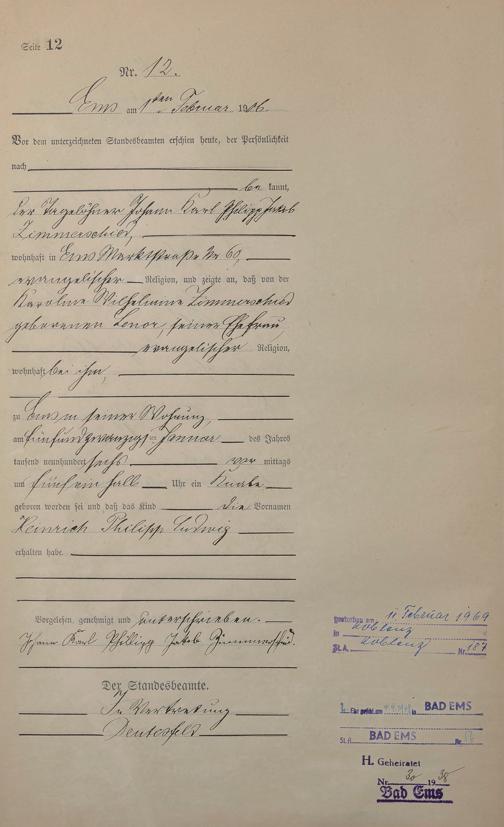 Seite 12
Nr. 12.
Ems am 1ten Februar 1906.
Vor dem unterzeichneten Standesbeamten erschien heute, der Persönlichkeit
nach
be kannt,
der Tagelöhner Johann Karl Philipp Jakob
Zimmerschied,
wohnhaft in Ems Marktstraße Nr 60,
evangelischer Religion, und zeigte an, daß von der
Karoline Wilhelmine Zimmerschied
geborenen seiner Ehefrau,
evangelischer Religion,
wohnhaft bei ihm,
zu Ems in seiner Wohnung,
am fünfundzwanzigsten Januar des Jahres
tausend neunhundert sechs vor mittags
um fünf ein halb Uhr ein Knabe
geboren worden sei und daß das Kind die Vornamen
Heinrich Philipp Ludwig
erhalten habe.
Vorgelesen, genehmigt und unterschrieben.
Johann Karl Phillipp Jakob Zimmerschied.
Der Standesbeamte.
In Vertretung
gestorben am 11 Februar 1969
in Koblenz
St.A. Koblenz Nr. 187
BAD EMS
St.A. BAD EMS Nr.
H. Geheiratet
Nr. 30 1938
Bad Ems